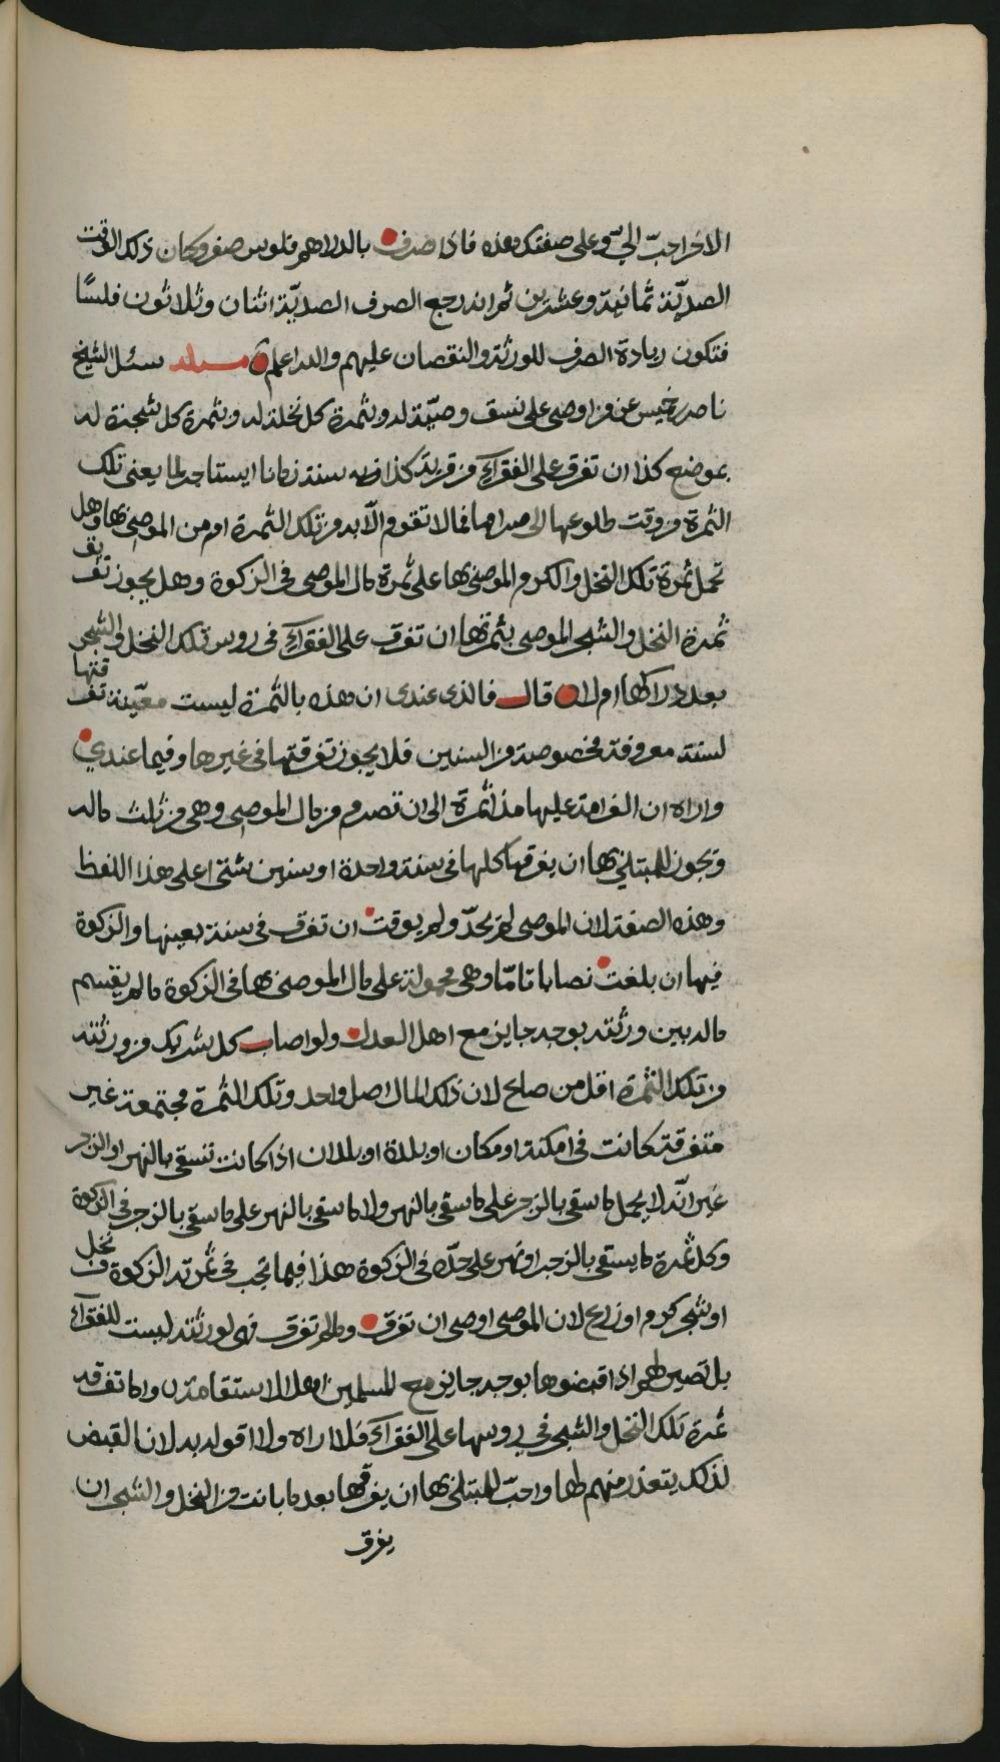 الاخر احبّ اليّ وعلى صفتك هذه فاذا صرف بالدراهم فلوس صفر وكان ذلك الوقت
الصديّة ثمانية وعشرين ثم انه رجع الصرف الصديّة اثنان وثلاثون فلسًا
فتكون زيادة الصرف للورثة والنقصان عليهم والله اعلم مسئلة سئل الشيخ
ناصر بن خميس عن من اوصى على نسق وصيّة له وبثمرة كل نخلة له وبثمرة كل شجرة له
بموضع كذا ان تفرق على الفقراء من قرية كذا سنة زمانا ايستاجر لها يعني تلك
الثمرة من وقت طلوعها الى صرامها فمالا تقوم الّا به من تلك الثمرة ام من الموصى بها وهل
تحمل ثمرة تلك النخل والكرم الموصى بها على ثمرة مال الموصي في الزكوة وهل يجوز تفريق
ثمرة النخل والشجر الموصى بثمرتها ان تفرق على الفقراء في روس تلك النخل والشجر
بعد دراكها ام لا قال فالذي عندي ان هذه بالثمرة ليست معيّنة تفرقتها
لسنة معروفة مخصوصة من السنين فلا يجوز تفرقتها في غيرها وفيما عندي
واراه ان الغرامة عليها مذ اثمرة الى ان تصرم من مال الموصي وهي من ثلث ماله
ويجوز للمبتلى بها ان يفرقها كلها في سنة واحدة او سنين شتى على هذا اللفظ
وهذه الصفة لان الموصي لم يحدّ ولم يوقت ان تفرق في سنة بعينها والزكوة
فيها ان بلغت نصابا تامّا وهي محمولة على مال الموصي بها في الزكوة ما لم يقسم
ماله بين ورثته بوجه جايز مع اهل العدل ولو اصاب كل شريك من ورثته
من تلك الثمرة اقل من صاع لان ذلك المال اصل واحد وتلك الثمرة مجتمعة غير
متفرقة كانت في امكنة او مكان او بلدة او بلدان اذا كانت تسقى بالنهر او الزجر
غير انّه لا يحمل ما سقى بالزجر على ما سقى بالنهر ولا ما سقى بالنهر على ما سقى بالزجر في الزكوة
وكل ثمرة ما يسقى بالزجر او نهر على حدّه في الزكوة هذا فيما تجب في ثمرته الزكوة من نخل
او شجر كرم او زرع لان الموصي اوصى ان تفرق وما لم تفرق فهي لورثته ليست للفقراء
بل تصير لهم اذا قبضوها بوجه جايز مع المسلمين اهل الاستقامة واما تفرقة
ثمرة تلك النخل والشجر في روسها على الفقراء فلا اراه ولا اقول به لان القبض
لذلك يتعذر منهم لها واحبّ للمبتلى بها ان يفرقها بعد ما بانت من النخل والشجر ان
يفرق